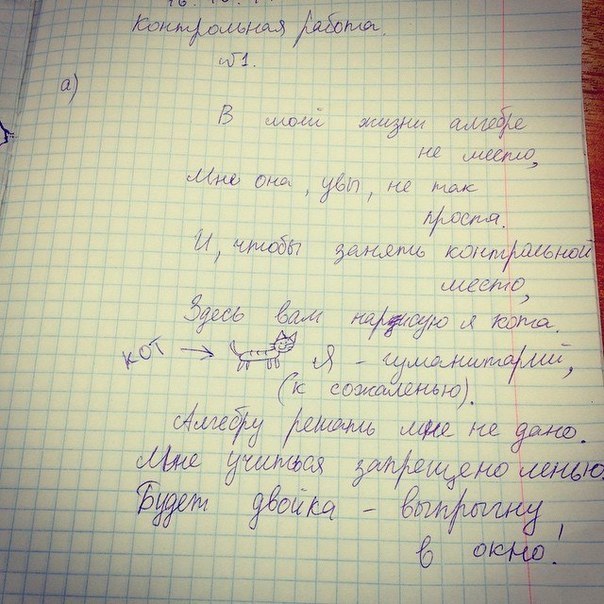 Контрольная работа.
№1.
а)
В моей жизни алгебре
не место,
Мне она, увы, не так
проста.
И, чтобы занять контральной
место,
Здесь вам нарисую я кота.
кот → Я - гуманитарий,
(к сожаленью).
Алгебру решать мне не дано.
Мне учиться запрещено ленью.
Будет двойка - выпрыгну
в окно!